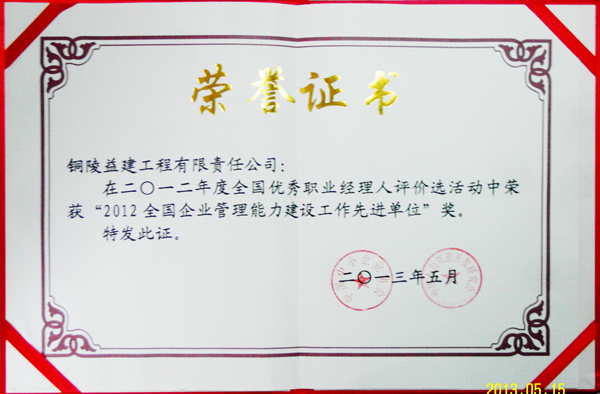 荣誉证书
铜陵益建工程有限责任公司:
在二〇一二年度全国优秀职业经理人评价选活动中荣
获“2012全国企业管理能力建设工作先进单位”奖。
特发此证。
二〇一三年五月
2013.05.15